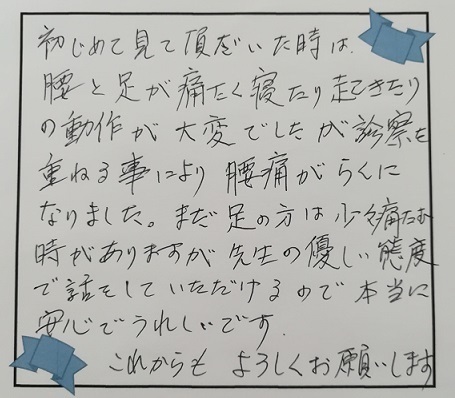 初じめて見て頂だいた時は、
腰と足が痛たく寝たり起てきたり
の動作が大変でしたが診察を
重ねる事により腰痛がらくに
なりました。まだ足の方は少々痛たむ
時がありますが先生の優しい態度
で話をしていただけるので本当に
安心でうれしいです.
これからも よろしくお願いします